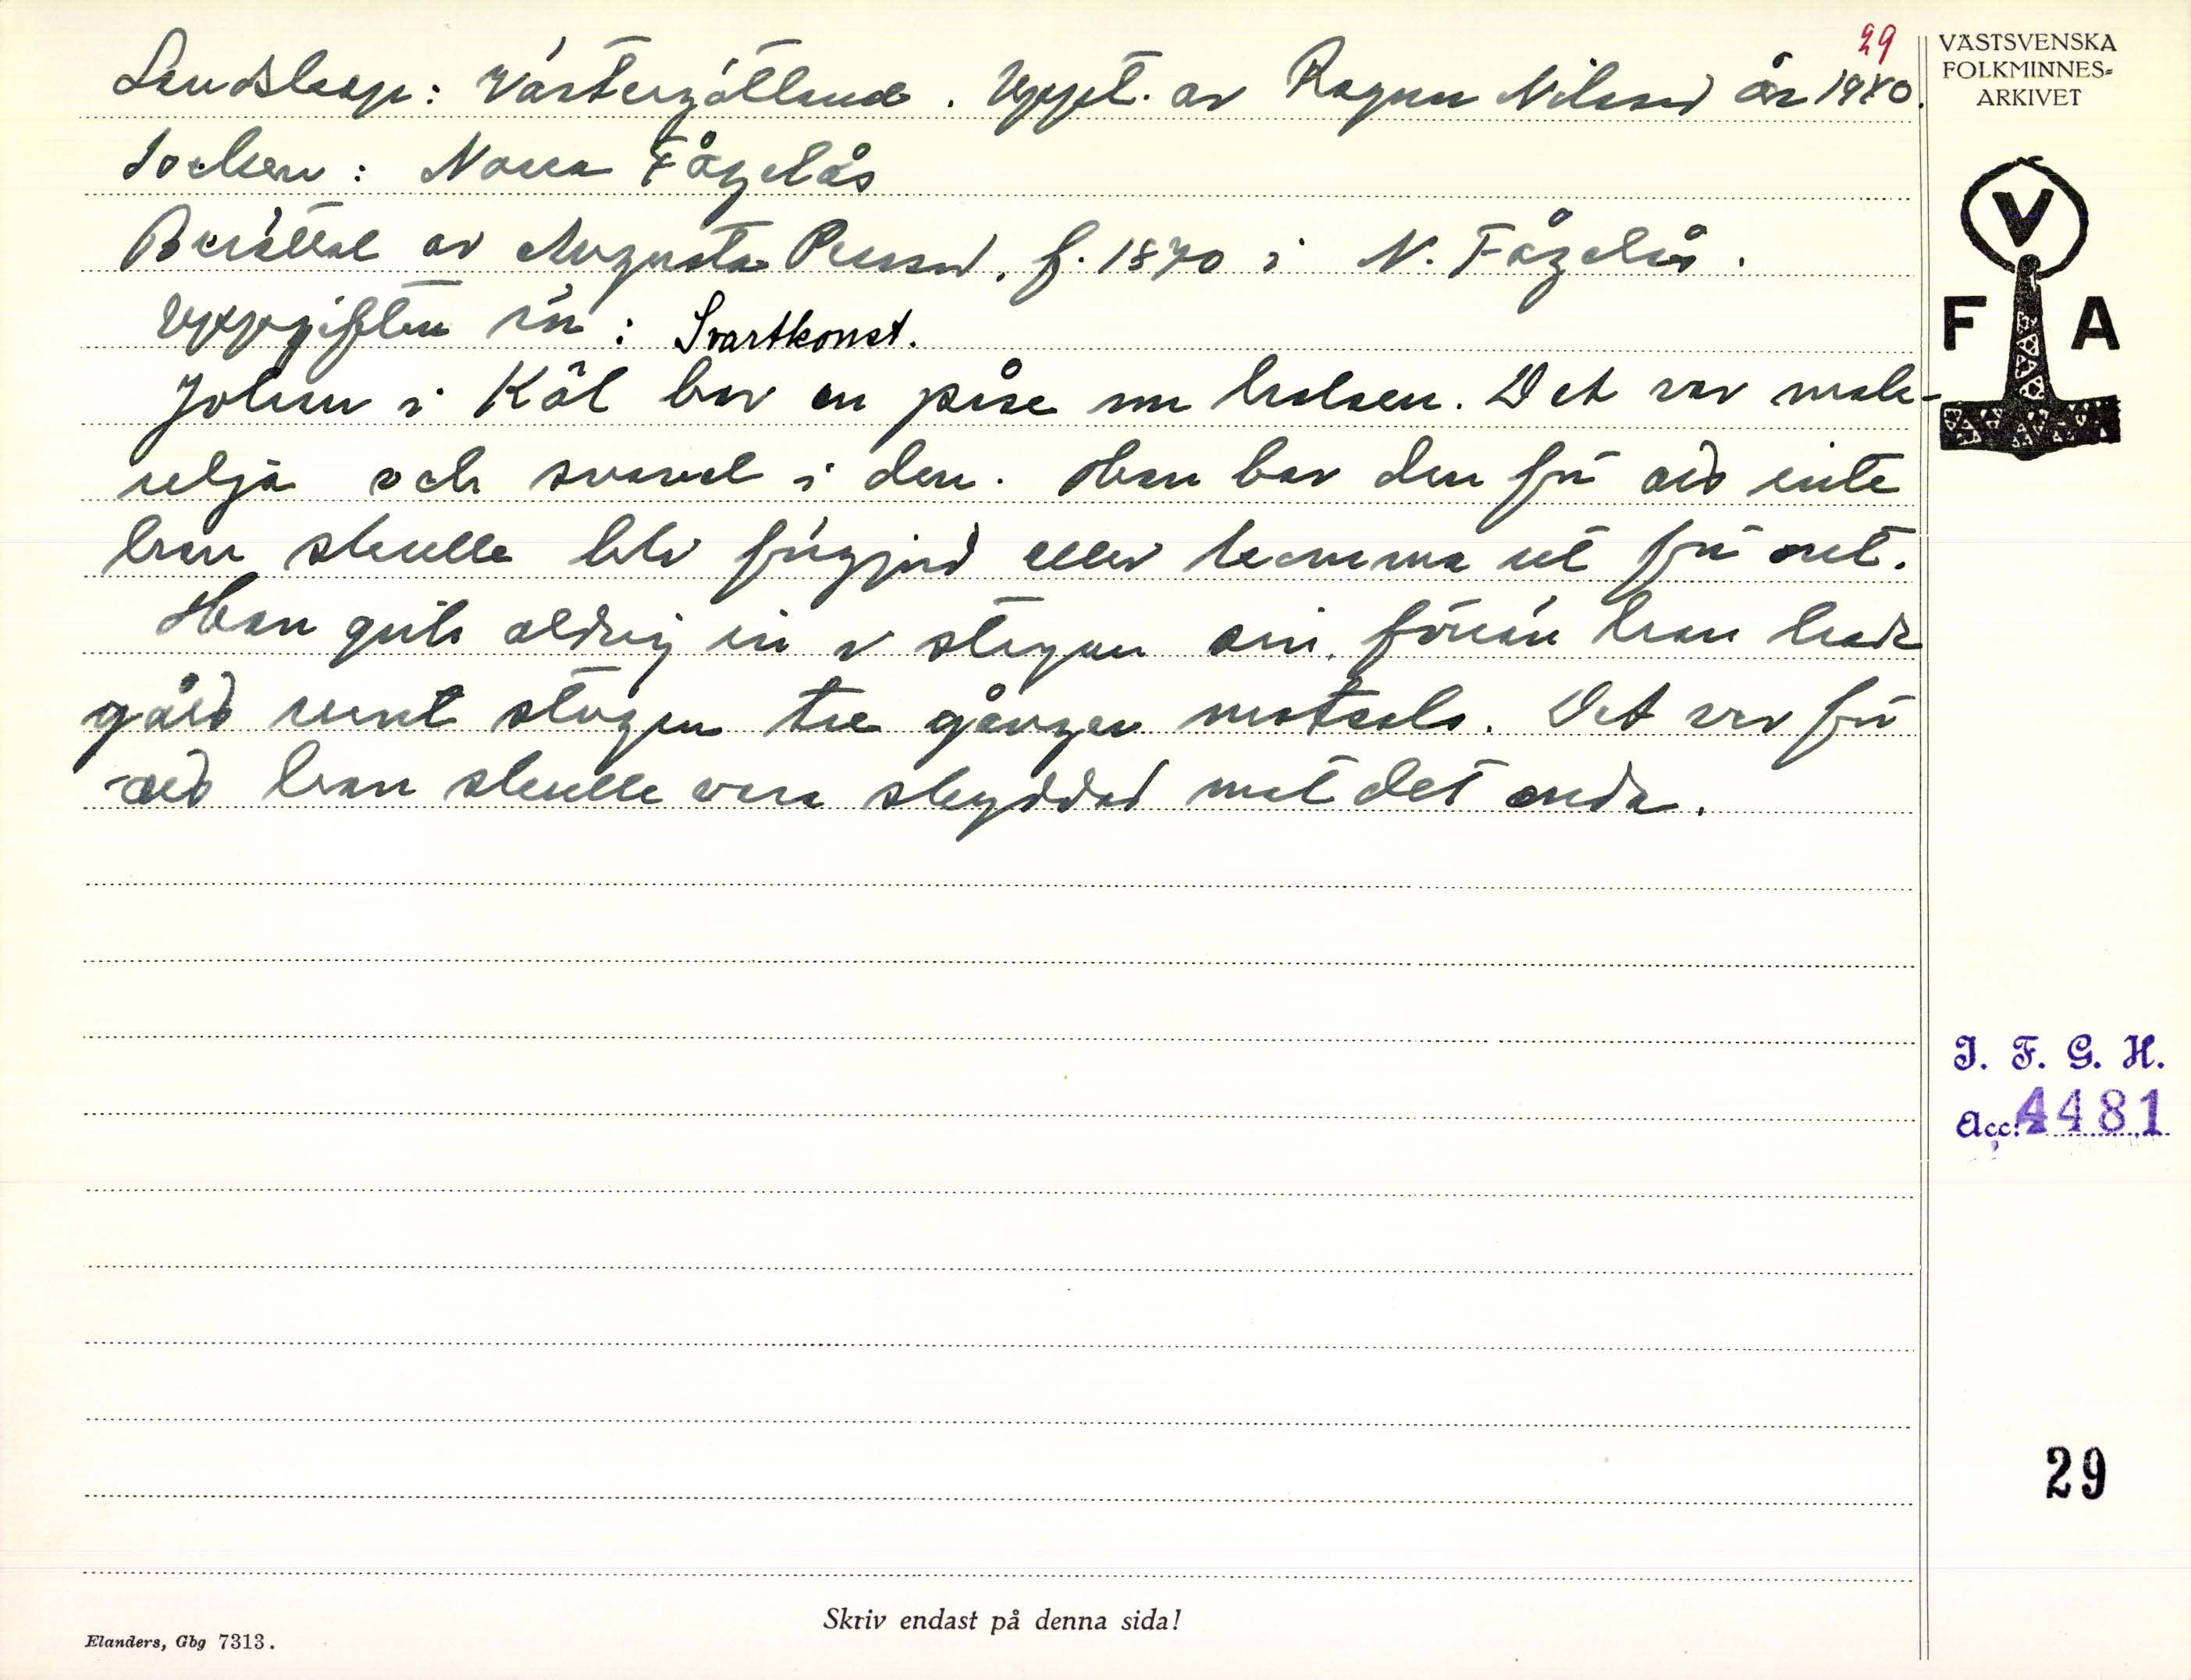 29
Landskap: Västergötland. Uppt. av Ragnar Nilsson år 1940.
Socken: Norra Fågelås
Berättat av Augusta Persson, f. 1870 i N. Fågelås.
Uppgiften är: Svartkonst.
Johan i Käl bar en påse um halsen. Det var male-
relja och svavel i den. Han bar den för aid inte
han skulle bli förgjord eller komma ut för ont.
Han gick aldrig in i stugan sin, förrän han hade
gåid runt stugan tre gånger motsols. Det var för
aid han skulle vara skyddad mot det onda.
VÄSTSVENSKA
FOLKMINNES-
ARKIVET
V
F A
I. F. G. H.
Acc. 4481
29
Skriv endast på denna sida!
Elanders, Gbg 7313.